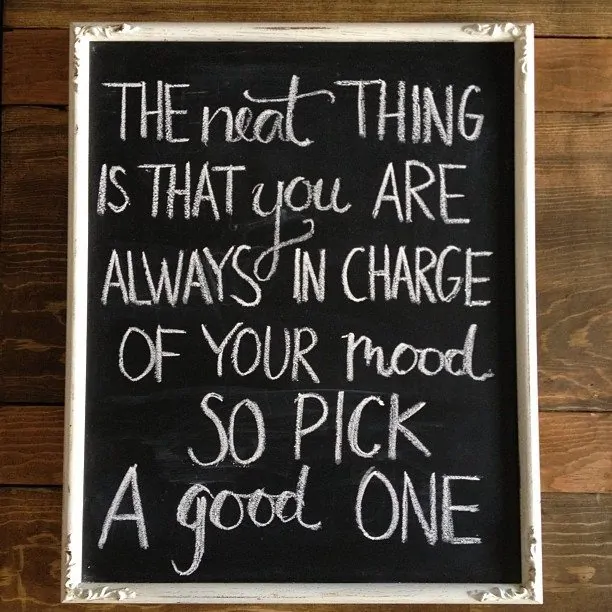 THE neat THING
IS THAT you ARE
ALWAYS IN CHARGE
OF YOUR mood
SO PICK
A good ONE